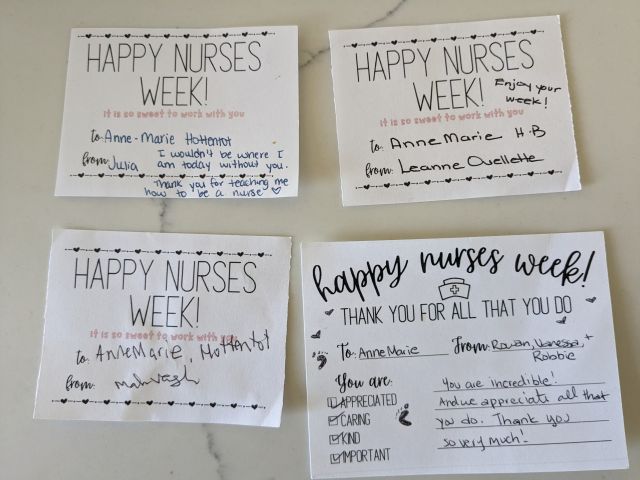 HAPPY NURSES
WEEK!
it is so sweet to work with you
to: Anne-Marie Hottentot
from: Julia I wouldn't be where I
am today without you.
Thank you for teaching me
how to be a nurse ♡
HAPPY NURSES
WEEK!
Enjoy your
week!
it is so sweet to work with you
to: AnneMarie H.B
from: Leanne Ouellette
HAPPY NURSES
WEEK!
it is so sweet to work with you
to: AnneMarie, Hottentot
from:
happy nurses week!
THANK YOU FOR ALL THAT YOU DO
To: AnneMarie From: Rowan, Vanessa, +
Robbie
You are:
APPRECIATED
CARING
KIND
IMPORTANT
You are incredible!
And we appreciate all that
you do. Thank you
so very much!